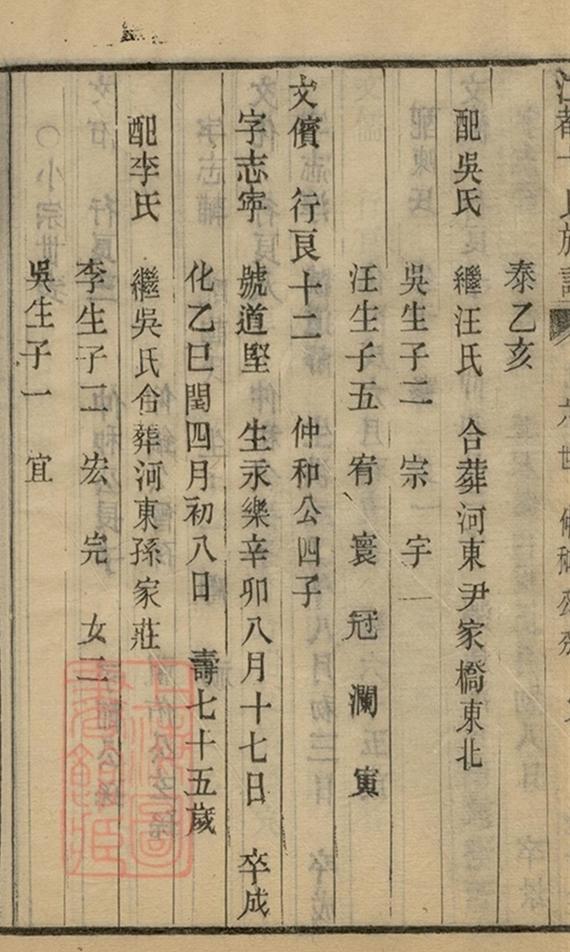 泰乙亥
配吳氏 繼汪氏 合葬河東尹家橋東北
吳生子二 宗 宇
汪生子五 宥 寰 冠 瀾 寅
文儐 行良十二 仲和公四子
字志寧 號道堅 生永樂辛卯八月十七日 卒成
化乙巳閏四月初八日 壽七十五歲
配李氏 繼吳氏合葬河東孫家莊
李生子二 宏 完 女二
吳生子一 宜